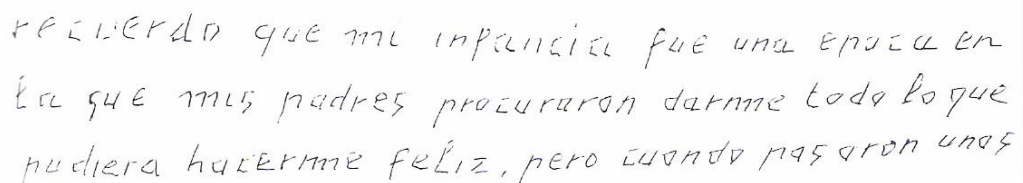 recuerdo que mi infancia fue una epoca en
la que mis padres procuraron darme todo lo que
pudiera hacerme feliz, pero cuando pasaron unos